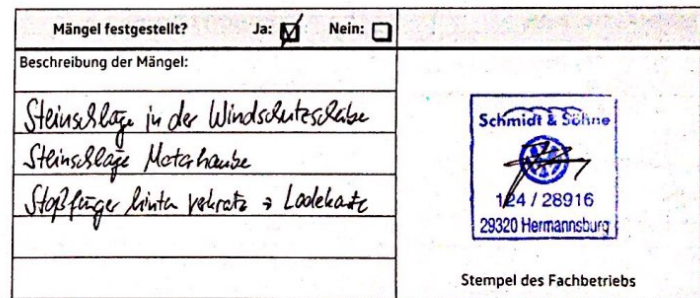 Mängel festgestellt? Ja: Nein:
Beschreibung der Mängel:
Steinschläge in der Windschutzscheibe
Steinschläge Motorhaube
Stoßfänger hinten verkratzt → Ladekante
Schmidt & Söhne
124 / 28916
29320 Hermannsburg
Stempel des Fachbetriebs